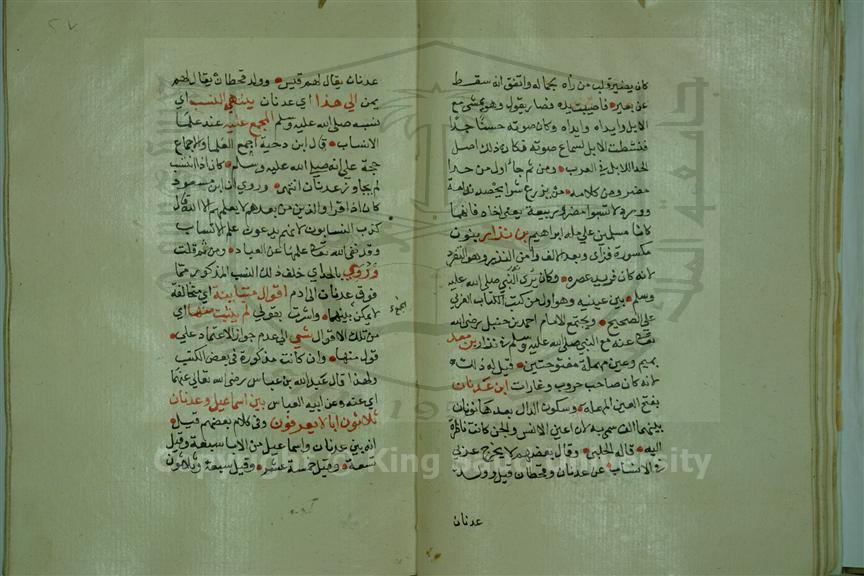 كان يصير قلب من رآه بجماله واتفق انه سقط
عن بعير فاصيبت يده فصار يقول وهو يمشي مع
الابل وايداه وايداه وكان صوته حسنا جدا
فنشطت الابل لسماع صوته فكان ذلك اصل
الحدا للابل في العرب ومن ثم جا اول من حدا
مضر ومن كلامه من يزرع شرا يحصد ندامة
وورد لا تسبوا مضر وربيعة يعني اخاه فانهما
كانا مسلمين علي ملة ابراهيم بن نذار بنون
مكسورة فزاى وبعد الالف را من النذر وهو النفرد
لانه كان فريد عصره وكان يرى النبي صلى الله عليه
وسلم بين عينيه وهو اول من كتب الكتاب العربي
علي الصحيح ويجتمع الامام احمد بن حنبل رضي الله
تعالى عنه مع النبي صلى الله عليه وسلم في نذار بن معد
بميم وعين مهملة مفتوحتين قيل له ذلك
لانه كان صاحب حروب وغارات ابن عدنان
بفتح العين المهملة وسكون الدال بعدها نونان
بينهما الف سمي به لان اعين الانس والجن كانت ناظرة
اليه قاله الحلبي وقال بعضهم لا يخرج عربي
في الانساب عن عدنان وقحطان قيل وولد
عدنان
٢٧
عدنان يقال لهم قيس وولد قحطان يقال لهم
يمن الي هذا اي عدنان ينتهي النسب اي
نسبه صلى الله عليه وسلم المجمع عليه عند علما
الانساب قال ابن دحية اجمع العلما والاجماع
حجة علي انه صلى الله عليه وسلم كان اذا انتسب
لم يجاوز عدنان انتهى وروي ان ابن مسعود
كان اذا قرا والذين من بعدهم لا يعلمهم الا الله قال
كذب النسابون لانهم يدعون علم الانساب
وقد نفى الله تعالى علمها عن العباد ومن ثم قلت
وروي بالبناي خلف ذلك النسب المذكور مما
فوق عدنان الي ادم اقوال متباينة اي متخالفة
لا يمكن بينها واشرت بقولي لم يثبت منها اي
الجمع
من تلك الاقوال شي الي عدم جواز الاعتماد علي
قول منها وان كانت مذكورة في بعض الكتب
ولهذا قال عبد الله بن عباس رضي الله تعالى عنهما
اي عنه وعن ابيه العباس بين اسماعيل وعدنان
ثلاثون ابا لا يعرفون وفي كلام بعضهم قيل
انه بين عدنان واسماعيل من الابا سبعة وقيل
تسعة وقيل خمسة عشر وقيل سبعة وثلاثون